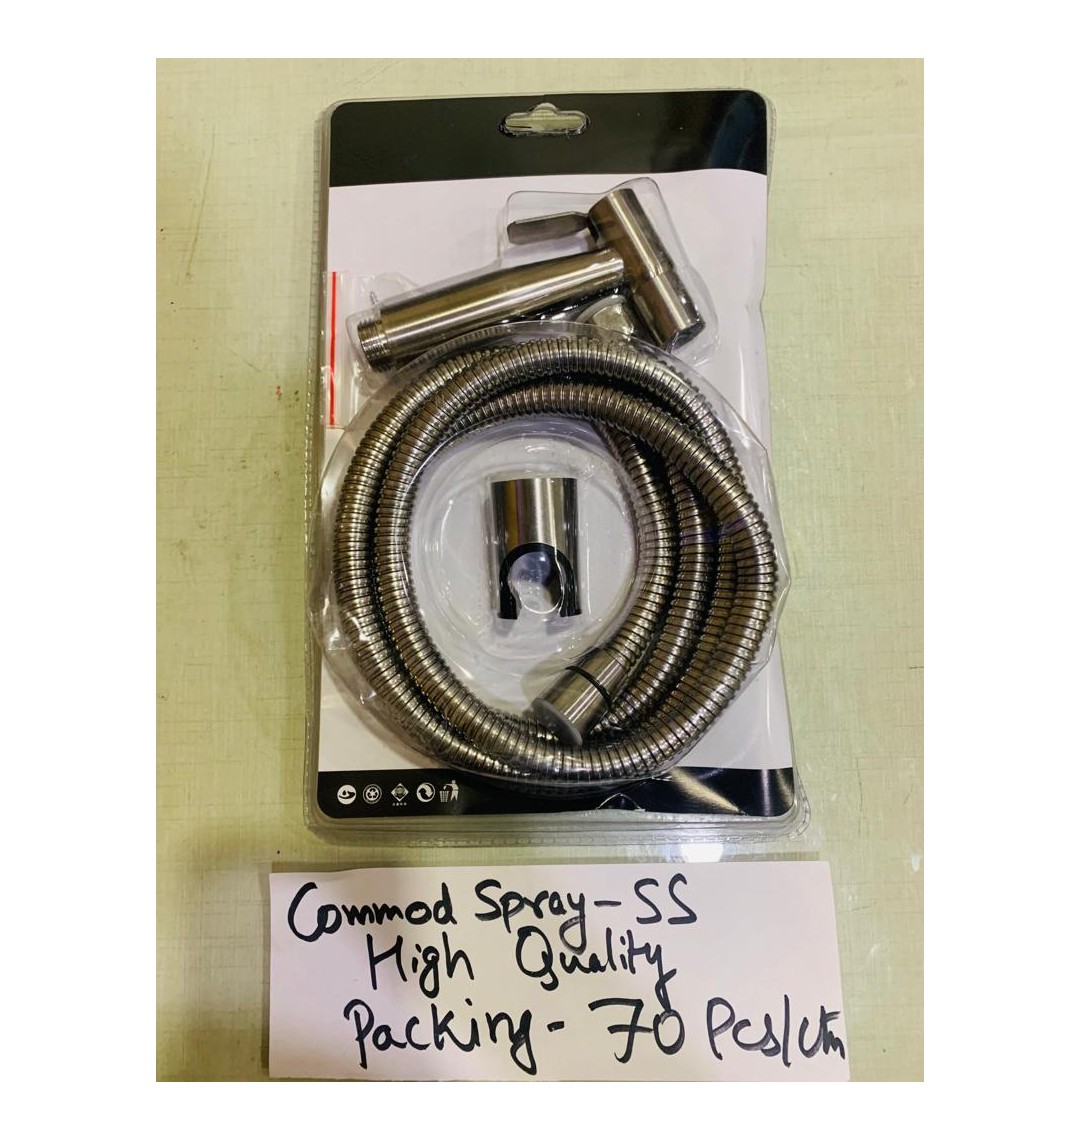 Commod Spray - SS
High Quality
Packing - 70 Pcs/ctn